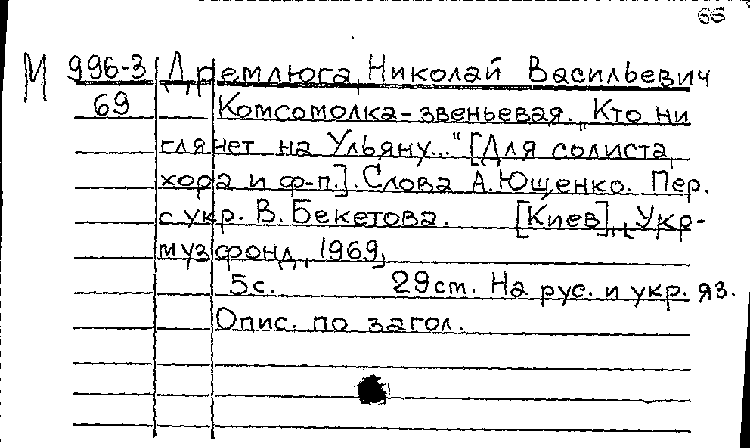 66
М 996-3 Дремлюга, Николай Васильевич
69 Комсомолка-звеньевая. "Кто ни
глянет на Ульяну..." [Для солиста,
хора и ф-п.]. Слова А. Ющенко. Пер.
с укр. В. Бекетова. [Киев], "Укр-
музфонд, 1969,
5с. 29см. На рус. и укр. яз.
Опис. по загол.